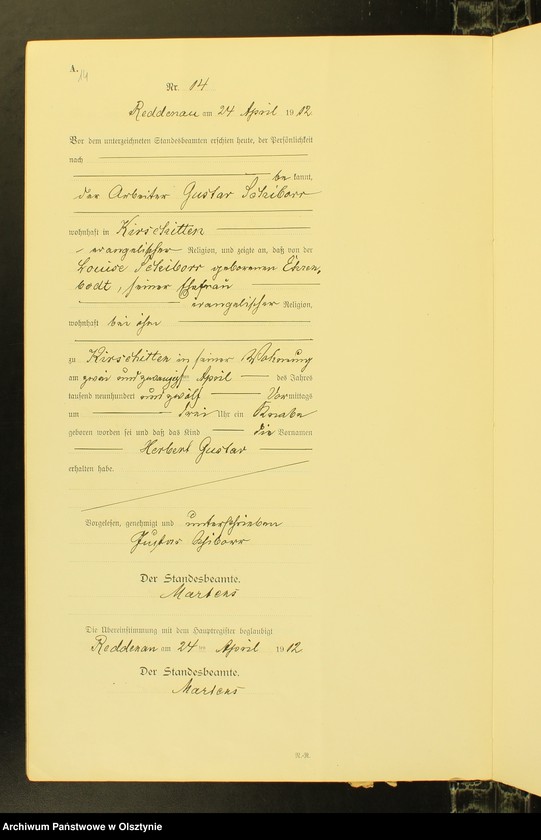 A.
14
Nr. 14
Reddenau am 24 April 1912
Vor dem unterzeichneten Standesbeamten erschien heute, der Persönlichkeit
nach
be kannt,
der Arbeiter Gustav Schiborr
wohnhaft in Kirschitten
evangelischer Religion, und zeigte an, daß von der
Louise Schiborr geborenen Ehren,
bodt, seiner Ehefrau
evangelischer Religion,
wohnhaft bei ihm
zu Kirschitten in seiner Wohnung
am zwei und zwanzigsten April des Jahres
tausend neunhundert und zwölf Vormittags
um drei Uhr ein Knabe
geboren worden sei und daß das Kind die Vornamen
Herbert Gustav
erhalten habe.
Vorgelesen, genehmigt und unterschrieben
Gustav Schiborr
Der Standesbeamte.
Martens
Die Übereinstimmung mit dem Hauptregister beglaubigt
Reddenau am 24 ten April 1912
Der Standesbeamte.
Martens
N.-R.
Archiwum Państwowe w Olsztynie